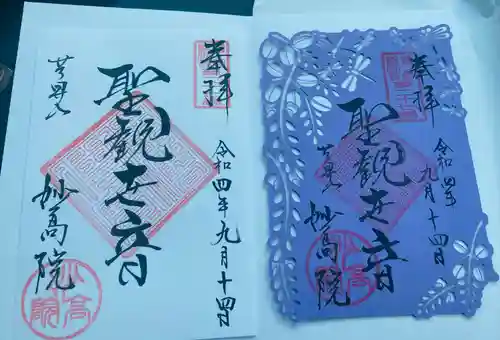 奉拝
令和四年九月十四日
聖観世音
妙高院
奉拝
令和四年
九月十四日
聖観世音
妙高院